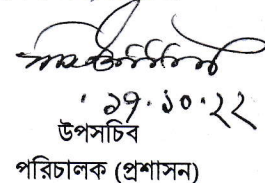 ১৭.১০.২২
উপসচিব
পরিচালক (প্রশাসন)